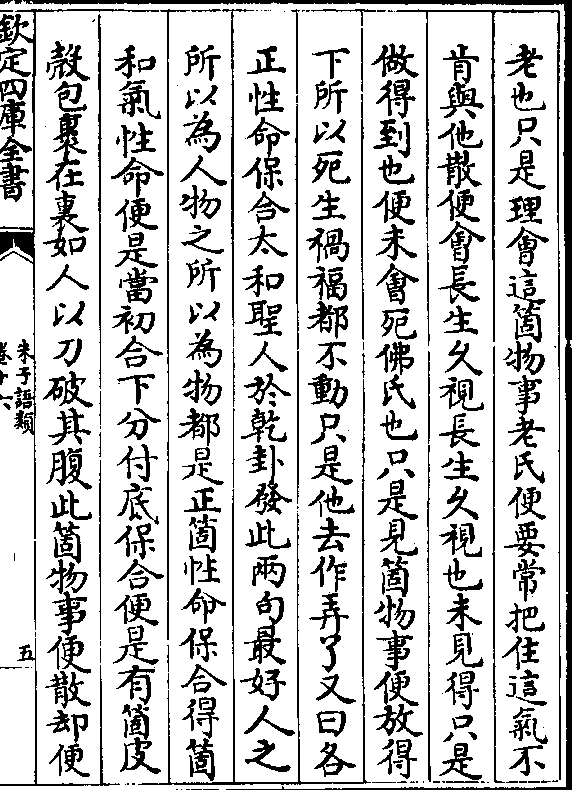 老也只是理會這箇物事老氏便要常把住這氣不
肯與他散便會長生久視長生久視也未見得只是
做得到也便未會死佛氏也只是見箇物事便放得
下所以死生禍福都不動只是他去作弄了又曰各
正性命保合太和聖人於乾卦發此兩句最好人之
所以為人物之所以為物都是正箇性命保合得箇
和氣性命便是當初合下分付底保合便是有箇皮
殼包裹在裏如人以刀破其腹此箇物事便散却便
欽定四庫全書
朱子語類
卷十六
五